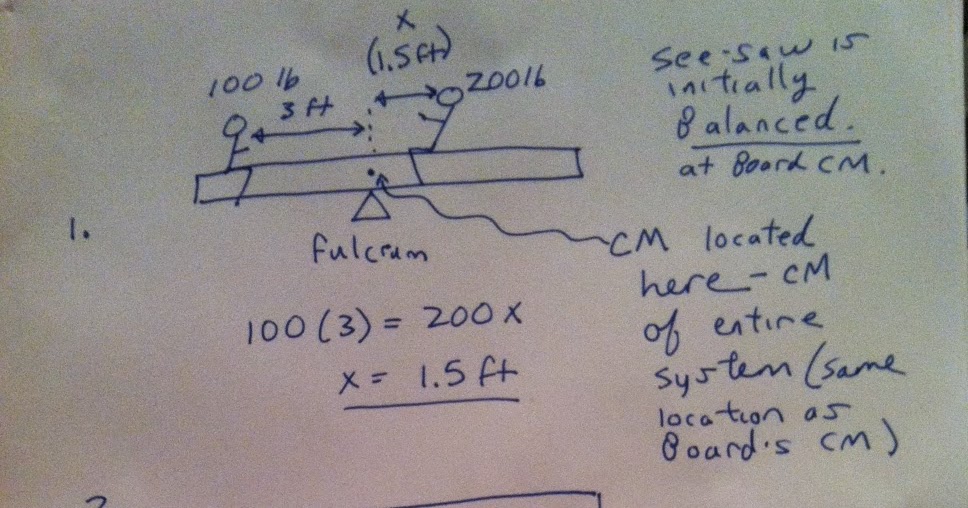 x
(1.5ft)
100 lb
200lb
3 ft
See-saw is
initially
Balanced.
at Board CM.
1.
fulcrum
CM located
here - CM
of entire
system (same
location as
Board's CM)
100(3) = 200x
x = 1.5 ft